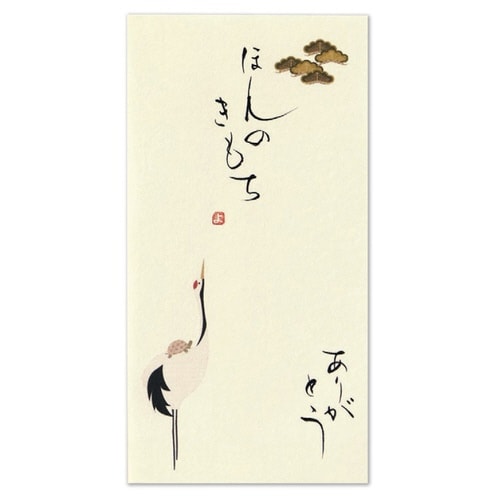 ほんの
きもち
よ
ありが
とう